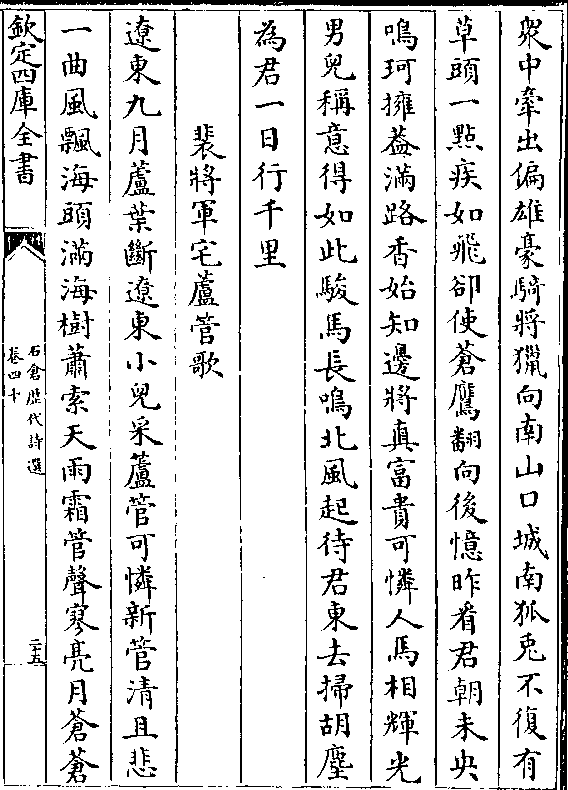 衆中牽出偏雄豪騎將獵向南山口城南狐兎不復有
草頭一㸃疾如飛卻使蒼鷹翻向後憶昨看君朝未央
鳴珂擁葢滿路香始知邊將真富貴可憐人馬相輝光
男兒稱意得如此駿馬長鳴北風起待君東去掃胡塵
為君一日行千里
裴將軍宅蘆管歌
遼東九月蘆葉斷遼東小兒采蘆管可憐新管清且悲
一曲風飄海頭滿海樹蕭索天雨霜管聲寥亮月蒼蒼
欽定四庫全書
石倉歴代詩選
卷四十
二十五